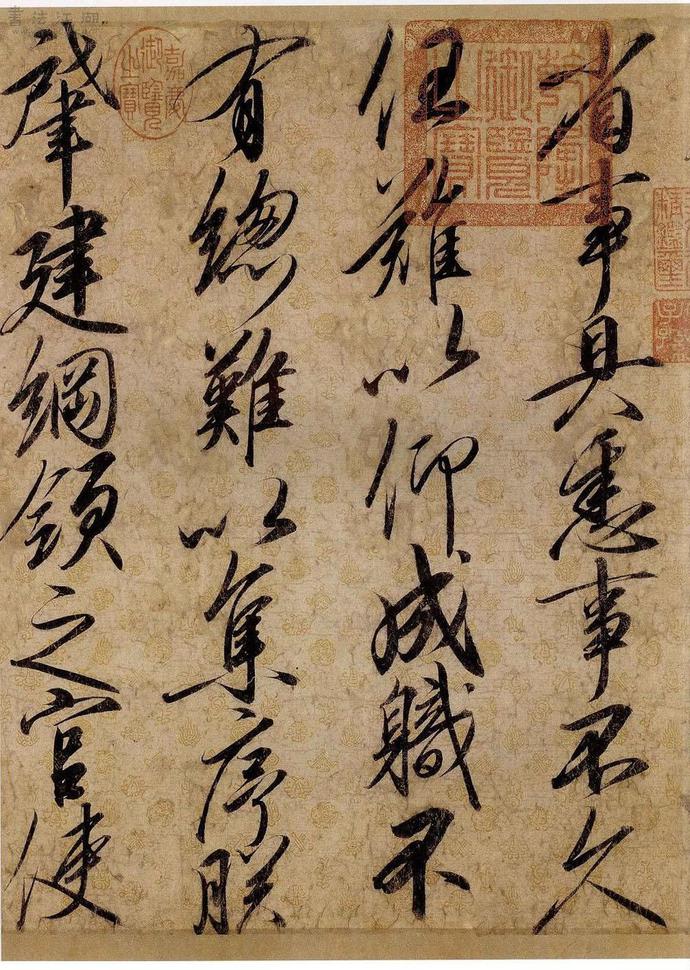 省事具悉事不久
任難以仰成職不
有總難以集序朕
肇建綱領之官使
乾隆御覽之寶
嘉慶御覽之寶
精鑑璽
子孫
書法江湖